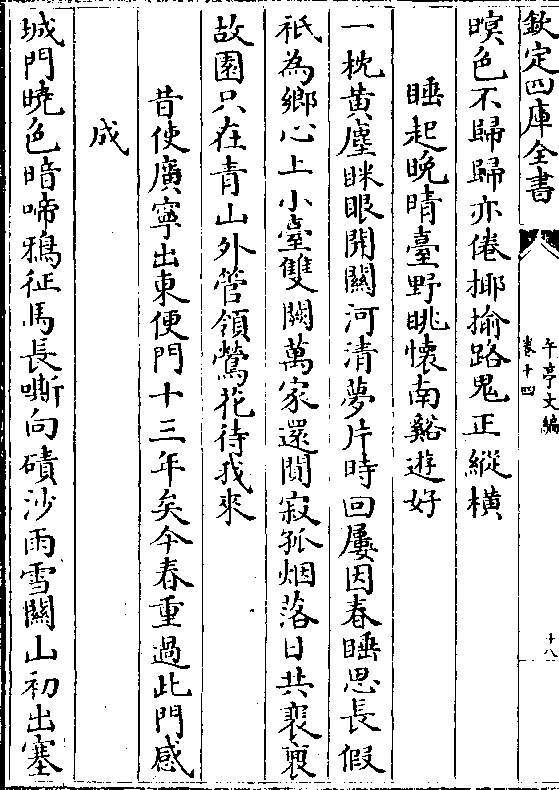 欽定四庫全書
午亭文編
卷十四
十八
暝色不歸歸亦倦揶揄路鬼正縱横
睡起晩晴臺野眺懷南谿遊好
一枕黄塵眯眼開闗河清夢片時回屢因春睡思長假
祇為鄉心上小臺雙闕萬家還闃寂孤烟落日共裵裒
故園只在青山外管領鶯花待我來
昔使廣寧出東便門十三年矣今春重過此門感
成
城門曉色暗啼鴉征馬長嘶向磧沙雨雪闗山初出塞